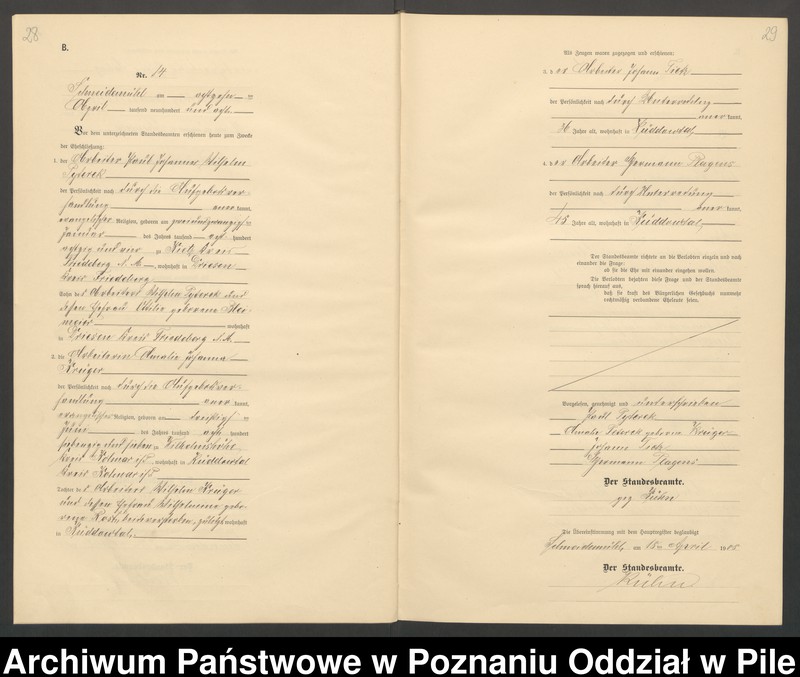 28
B.
Nr. 14
Schneidemühl am achtzehn
April tausend neunhundert und acht
Vor dem unterzeichneten Standesbeamten erschienen heute zum Zwecke
der Eheschließung:
1. der Arbeiter Paul Johannes Wilhelm
der Persönlichkeit nach durch die Aufgebotsver-
handlung anerkannt,
evangelischer Religion, geboren am zweiundzwanzigs-
Januar des Jahres tausend acht hundert
achtzig und vier zu Kreis
Friedeberg N. M., wohnhaft in Driesen
Kreis Friedeberg
Sohn des Arbeiters Wilhelm und
dessen Ehefrau geborene
wohnhaft
in Driesen Kreis Friedeberg N. M.
2. die Arbeiterin Amalie Johanna
Krüger
der Persönlichkeit nach durch die Aufgebotsver-
handlung anerkannt,
evangelischer Religion, geboren am dreißigs-
des Jahres tausend acht hundert
siebenzig und sieben zu Wilhelmshöhe
Kreis Kolmar i/P, wohnhaft in Küddowtal
Kreis Kolmar i/P
Tochter des Arbeiters Wilhelm Krüger
und dessen Ehefrau Wilhelmine gebo-
rene beide verstorben, zuletzt wohnhaft
in Küddowtal.
29
Als Zeugen waren zugezogen und erschienen:
3. der Arbeiter Johann
der Persönlichkeit nach durch Unterredung
anerkannt,
Jahre alt, wohnhaft in Küddowtal
4. der Arbeiter Hermann
der Persönlichkeit nach durch Unterredung
anerkannt,
45 Jahre alt, wohnhaft in Küddowtal
Der Standesbeamte richtete an die Verlobten einzeln und nach
einander die Frage:
ob sie die Ehe mit einander eingehen wollen.
Die Verlobten bejahten diese Frage und der Standesbeamte
sprach hierauf aus,
daß sie kraft des Bürgerlichen Gesetzbuchs nunmehr
rechtmäßig verbundene Eheleute seien.
Vorgelesen, genehmigt und unterschrieben
Paul
Amalie geborene Krüger
Johann
Hermann
Der Standesbeamte.
gez Kühn
Die Übereinstimmung mit dem Hauptregister beglaubigt
Schneidemühl, am 18 April 1908
Der Standesbeamte.
Kühn
Archiwum Państwowe w Poznaniu Oddział w Pile